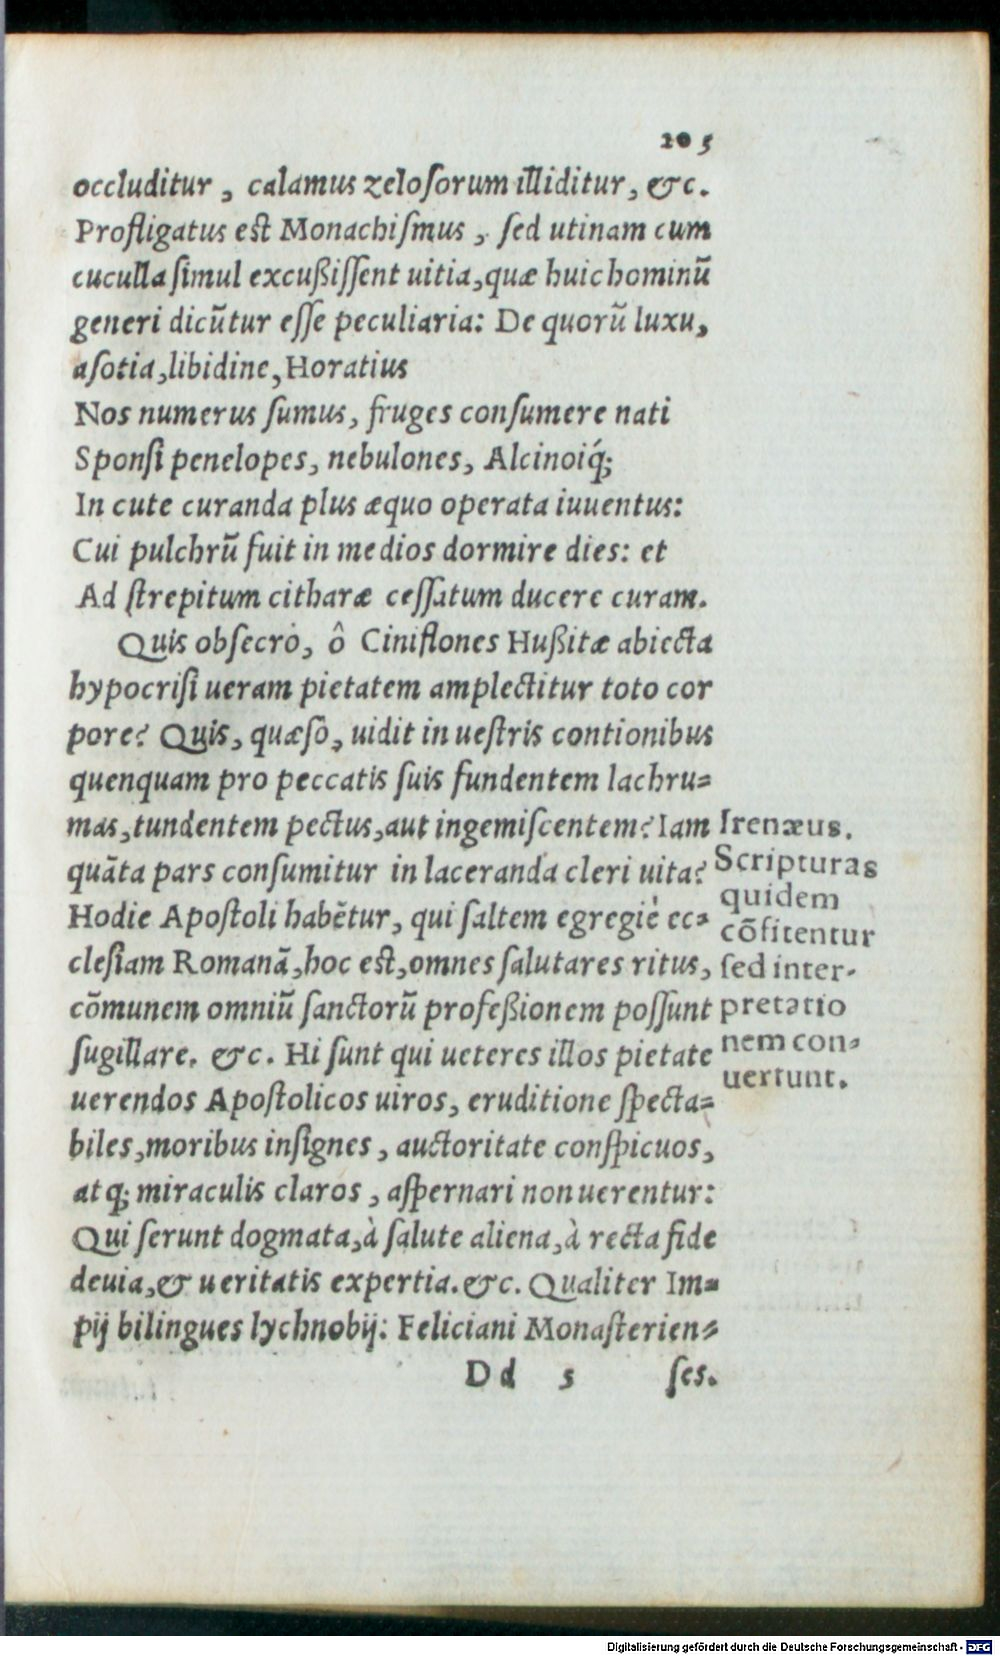 205
occluditur, calamus zeloſorum illiditur, &c.
Profligatus eſt Monachiſmus, ſed utinam cum
cuculla ſimul excußiſſent uitia, quæ huic hominũ
generi dicũtur eſſe peculiaria: De quorũ luxu,
aſotia, libidine, Horatius
Nos numerus ſumus, fruges conſumere nati
Sponſi penelopes, nebulones, Alcinoiq́;
In cute curanda plus æquo operata iuuentus:
Cui pulchrũ fuit in medios dormire dies: et
Ad ſtrepitum citharæ ceſſatum ducere curam.
Quis obſecrò, ô Ciniflones Hußitæ abiecta
hypocriſi ueram pietatem amplectitur toto cor
pore? Quis, quæſò, uidit in ueſtris contionibus
quenquam pro peccatis ſuis fundentem lachru=
mas, tundentem pectus, aut ingemiſcentem? Iam
quãta pars conſumitur in laceranda cleri uita?
Hodie Apoſtoli habẽtur, qui ſaltem egregiè ec=
cleſiam Romanã, hoc eſt, omnes ſalutares ritus,
cõmunem omniũ ſanctorũ profeßionem poſſunt
ſugillare. &c. Hi ſunt qui ueteres illos pietate
uerendos Apoſtolicos uiros, eruditione ſpecta=
biles, moribus inſignes, auctoritate conſpicuos,
atq; miraculis claros, aſpernari non uerentur:
Qui ſerunt dogmata, à ſalute aliena, à recta fide
deuia, & ueritatis expertia. &c. Qualiter Im=
pij bilingues lychnobij: Feliciani Monaſterien=
Dd 5 ſes.
Irenæus.
Scripturas
quidem
cõfitentur
ſed inter-
pretatio
nem con=
uertunt.
Digitalisierung gefördert durch die Deutsche Forschungsgemeinschaft - DFG